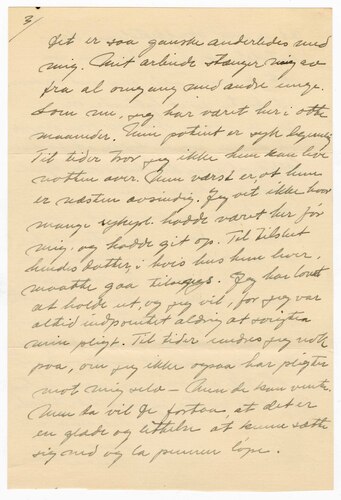 3/
Det er saa ganske anderledes med
mig. Mit arbeide stænger mig av
fra al omgang med andre unge.
Som nu, jeg har været her i otte
maaneder. Min patient er syk
Til tider tror jeg ikke hun kan leve
natten over. Men værst er, at hun
er næsten avsindig. Jeg vet ikke hvor
mange sykepl. hadde været her før
mig, og hadde git op. Til tilslut
hendes datter, i hvis hus hun bor,
maatte gaa tilsengs. Jeg har lovet
at holde ut, og jeg vil, for jeg var
altid indpointet aldrig at svigta
min pligt. Til tider undres jeg nok
paa, om jeg ikke ogsaa har pligter
mot mig selv — Men de kan vente.
Men da vil De forstaa, at det er
en glæde og lettelse at kunne sætte
sig ned og la pennen løpe.